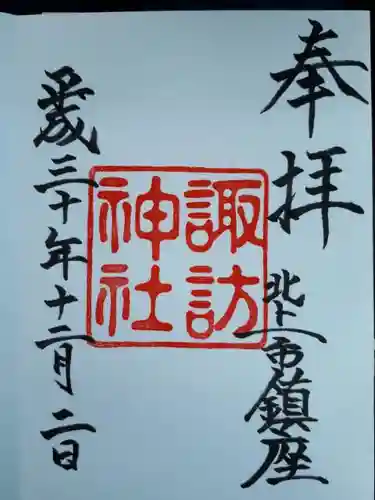 奉拝
北上市鎮座
諏訪
神社
平成三十年十二月二日